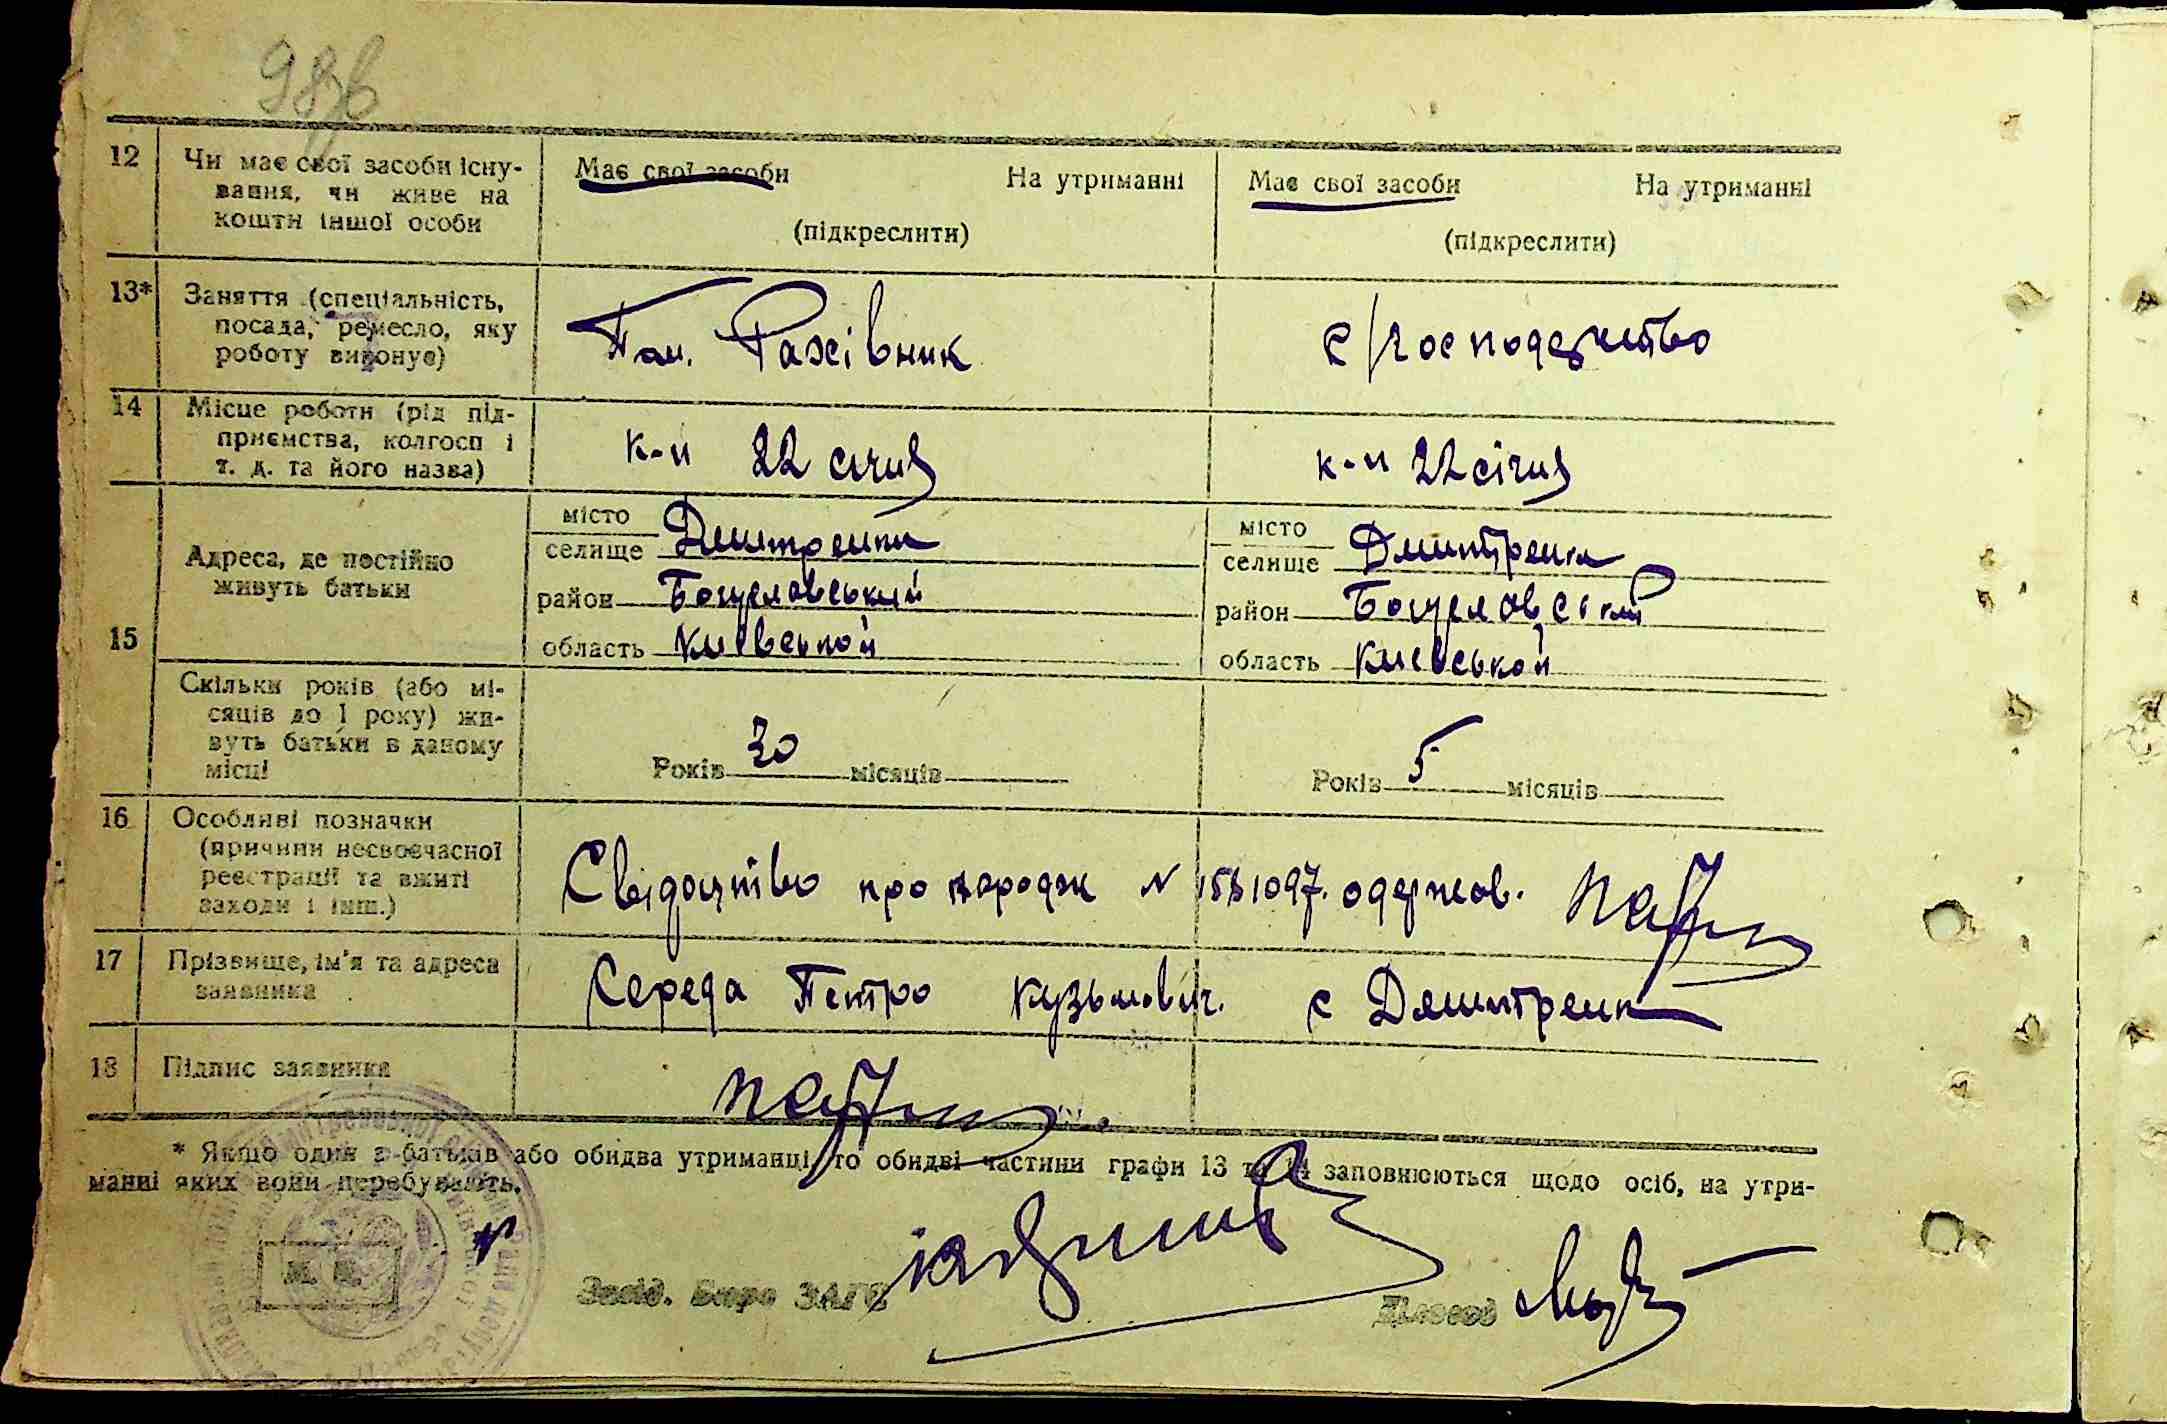 98зв
12 Чи має свої засоби існу-
вання, чи живе на
кошти іншої особи
Має свої засоби На утриманні
(підкреслити)
Має свої засоби На утриманні
(підкреслити)
13* Заняття (спеціальність,
посада, ремесло, яку
роботу виконує)
Рахівник
с/господарство
14 Місце роботи (рід під-
приємства, колгосп і
т. д. та його назва)
к-п 22 січня
к-п 22 січня
15 Адреса, де постійно
живуть батьки
місто
селище Дмитренки
район Богуславський
область Київської
місто
селище Дмитренки
район Богуславський
область Київської
Скільки років (або мі-
сяців до 1 року) жи-
вуть батьки в даному
місці
Років 30 місяців
Років 5 місяців
16 Особливі позначки
(причини несвоєчасної
реєстрації та вжиті
заходи і інш.)
Свідоцтво про народж N 1531097. одержав.
17 Прізвище, ім'я та адреса
заявника
Середа Петро Кузьмович. с Дмитренки
18 Підпис заявника
* Якщо один з батьків або обидва утриманці, то обидві частини графи 13 та 14 заповнюються щодо осіб, на утри-
манні яких вони перебувають.
М. П.
Завід. Бюро ЗАГС
Діловод